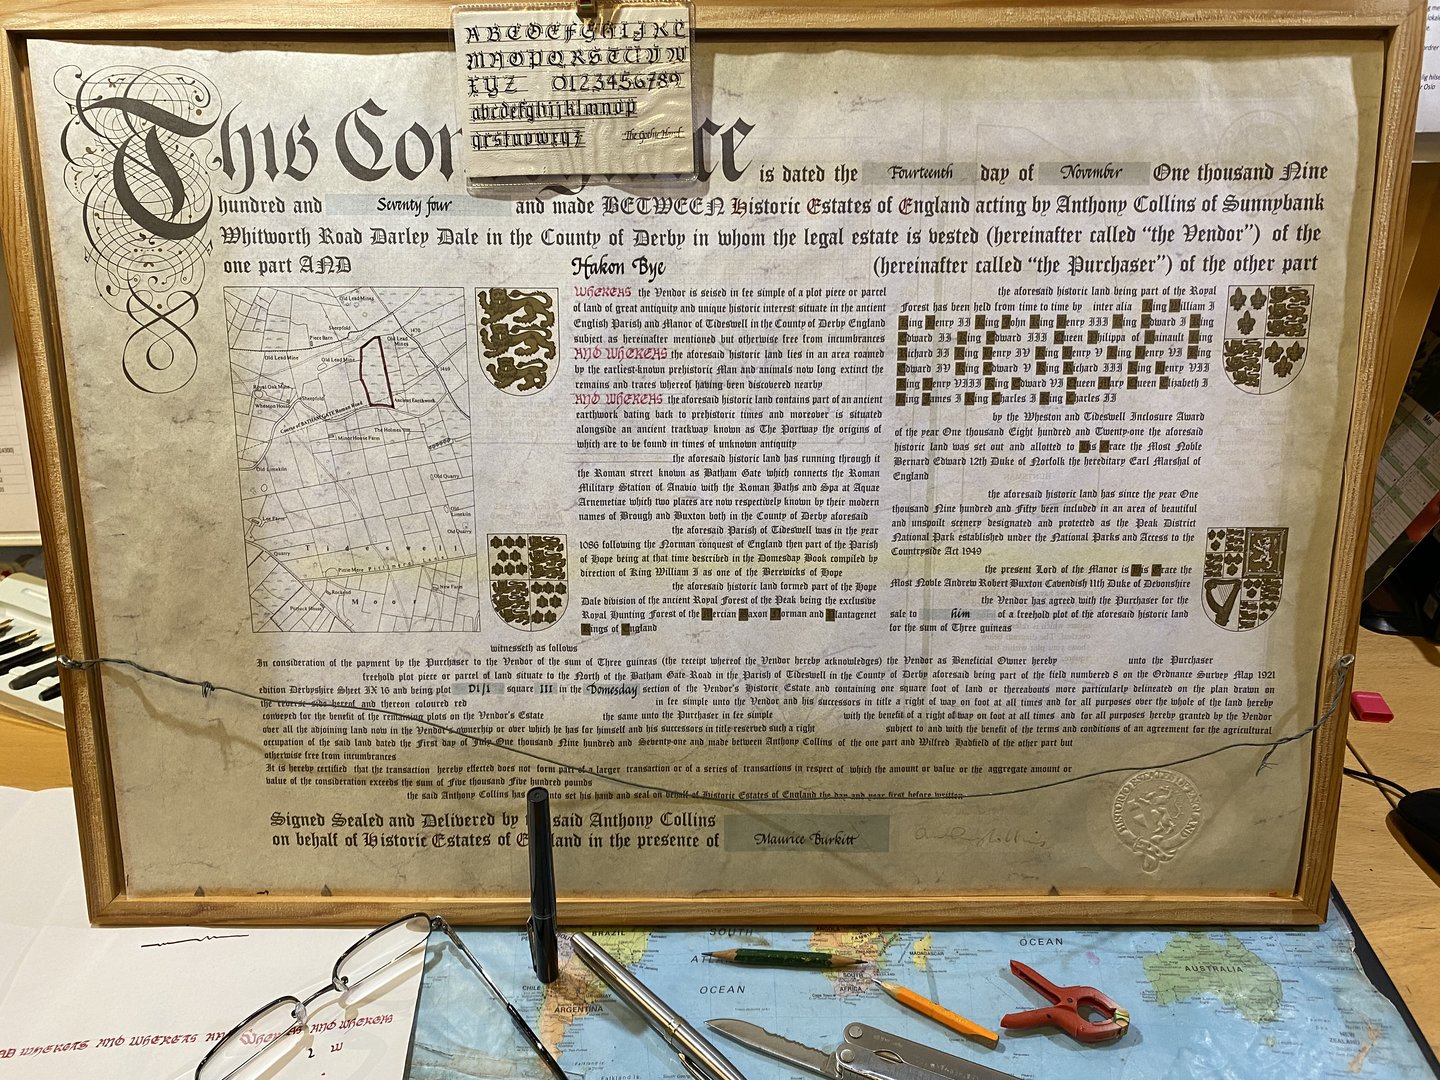 ABCDEFGHIJKL
MNOPQRSTUVW
XYZ 0123456789
abcdefghijklmnop
qrstuvwxyz The Gothic Hand
This Con
is dated the Fourteenth day of November One thousand Nine
hundred and Seventy four and made BETWEEN Historic Estates of England acting by Anthony Collins of Sunnybank
Whitworth Road Darley Dale in the County of Derby in whom the legal estate is vested (hereinafter called “the Vendor”) of the
one part AND Hakon Bye (hereinafter called “the Purchaser”) of the other part
Old Lead Mines
Sheepfold
Piece Barn
Old Lead Mine
Old Lead Mine
Old Lead Mines
1470
1469
Royal Oak Mine
Wheston House
Sheepfold
Course of BATHAMGATE Roman Road
Ancient Earthwork
The Holmes
Minor House Farm
Old Limekiln
Old Quarry
Old Limekiln
Lee Farm
Old Quarry
Quarry
Tideswell
New Farm
Rockend
Pittack House
Moor
WHEREAS the Vendor is seised in fee simple of a plot piece or parcel
of land of great antiquity and unique historic interest situate in the ancient
English Parish and Manor of Tideswell in the County of Derby England
subject as hereinafter mentioned but otherwise free from incumbrances
AND WHEREAS the aforesaid historic land lies in an area roamed
by the earliest-known prehistoric Man and animals now long extinct the
remains and traces whereof having been discovered nearby
AND WHEREAS the aforesaid historic land contains part of an ancient
earthwork dating back to prehistoric times and moreover is situated
alongside an ancient trackway known as The Portway the origins of
which are to be found in times of unknown antiquity
the aforesaid historic land has running through it
the Roman street known as Batham Gate which connects the Roman
Military Station of Anavio with the Roman Baths and Spa at Aquae
Arnemetiae which two places are now respectively known by their modern
names of Brough and Buxton both in the County of Derby aforesaid
the aforesaid Parish of Tideswell was in the year
1086 following the Norman conquest of England then part of the Parish
of Hope being at that time described in the Domesday Book compiled by
direction of King William I as one of the Berewicks of Hope
the aforesaid historic land formed part of the Hope
Dale division of the ancient Royal Forest of the Peak being the exclusive
Royal Hunting Forest of the Mercian Saxon Norman and Plantagenet
Kings of England
the aforesaid historic land being part of the Royal
Forest has been held from time to time by inter alia King William I
King Henry II King John King Henry III King Edward I King
Edward II King Edward III Queen Philippa of Hainault King
Richard II King Henry IV King Henry V King Henry VI King
Edward IV King Edward V King Richard III King Henry VII
King Henry VIII King Edward VI Queen Mary Queen Elizabeth I
King James I King Charles I King Charles II
by the Wheston and Tideswell Inclosure Award
of the year One thousand Eight hundred and Twenty-one the aforesaid
historic land was set out and allotted to His Grace the Most Noble
Bernard Edward 12th Duke of Norfolk the hereditary Earl Marshal of
England
the aforesaid historic land has since the year One
thousand Nine hundred and Fifty been included in an area of beautiful
and unspoilt scenery designated and protected as the Peak District
National Park established under the National Parks and Access to the
Countryside Act 1949
the present Lord of the Manor is His Grace the
Most Noble Andrew Robert Buxton Cavendish 11th Duke of Devonshire
the Vendor has agreed with the Purchaser for the
sale to him of a freehold plot of the aforesaid historic land
for the sum of Three guineas
witnesseth as follows
In consideration of the payment by the Purchaser to the Vendor of the sum of Three guineas (the receipt whereof the Vendor hereby acknowledges) the Vendor as Beneficial Owner hereby unto the Purchaser
freehold plot piece or parcel of land situate to the North of the Batham Gate Road in the Parish of Tideswell in the County of Derby aforesaid being part of the field numbered 8 on the Ordnance Survey Map 1921
edition Derbyshire Sheet IX 16 and being plot D1/1 square III in the Domesday section of the Vendor's Historic Estate and containing one square foot of land or thereabouts more particularly delineated on the plan drawn on
the reverse side hereof and thereon coloured red in fee simple unto the Vendor and his successors in title a right of way on foot at all times and for all purposes over the whole of the land hereby
conveyed for the benefit of the remaining plots on the Vendor's Estate the same unto the Purchaser in fee simple with the benefit of a right of way on foot at all times and for all purposes hereby granted by the Vendor
over all the adjoining land now in the Vendor's ownership or over which he has for himself and his successors in title reserved such a right subject to and with the benefit of the terms and conditions of an agreement for the agricultural
occupation of the said land dated the First day of July One thousand Nine hundred and Seventy-one and made between Anthony Collins of the one part and Wilfred Hadfield of the other part but
otherwise free from incumbrances
It is hereby certified that the transaction hereby effected does not form part of a larger transaction or of a series of transactions in respect of which the amount or value or the aggregate amount or
value of the consideration exceeds the sum of Five thousand Five hundred pounds
the said Anthony Collins has unto set his hand and seal on behalf of Historic Estates of England the day and year first before written
Signed Sealed and Delivered by said Anthony Collins
on behalf of Historic Estates of England in the presence of Maurice Burkitt
HISTORIC ESTATES OF ENGLAND
AND WHEREAS AND WHEREAS
AND WHEREAS
BRAZIL
SOUTH
OCEAN
CHILE
ARGENTINA
SOUTH AFRICA
MADAGASCAR
OCEAN
AUSTRALIA
NEW ZEALAND